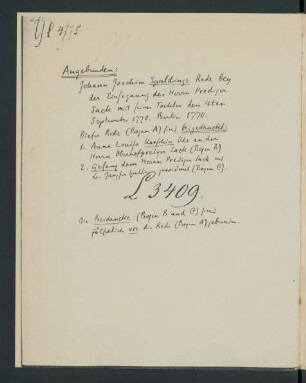 Yf 4775
Angebunden:
Johann Joachim Spaldings Rede bey
der Einsegnung des Herrn Prediger
Sack mit seiner Tochter den 4ten
September 1770. Berlin 1770.
Dieser Rede (Bogen A) sind beigedruckt:
1. Anna Louisa Karschin Ode an den
Herrn Oberhofprediger Sack (Bogen B)
2. Gesang dem Herrn Prediger Sack und
gewidmet (Bogen C).
L 3409.
Die Beidrucke (Bogen B und C) sind
fälschlich vor die Rede (Bogen A) gebunden.